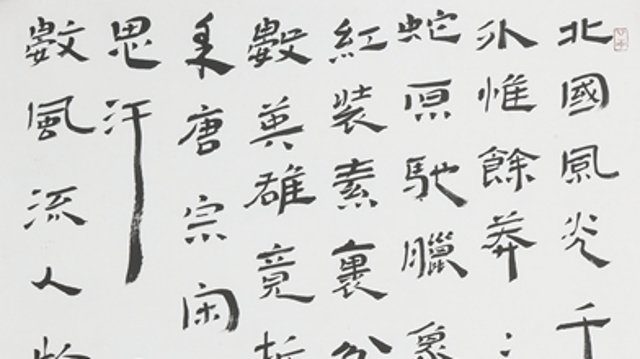 北國風光千
外惟餘莽
蛇原馳臘象
紅裝素裹分
數英雄竟折
采唐宗宋
思汗
數風流人物